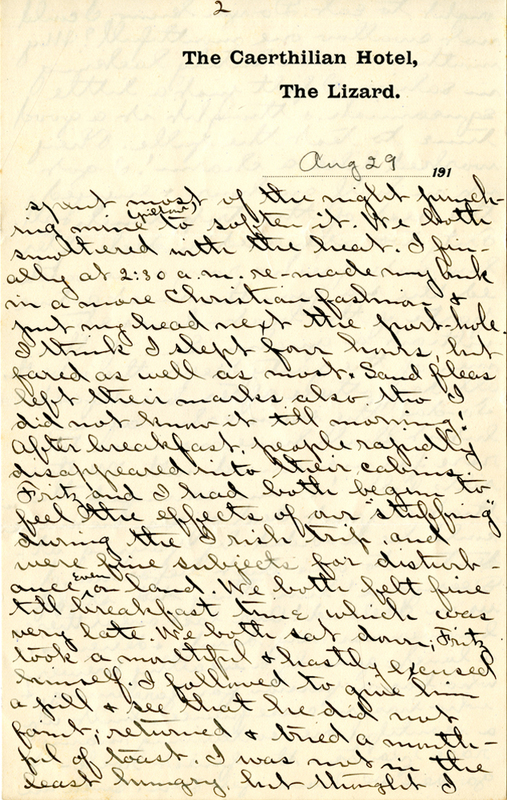 2
The Caerthilian Hotel,
The Lizard.
Aug 29 191
spent most of the night punch-
ing mine (pillow) to soften it. We both
smothered with the heat. I fin-
ally at 2:30 a.m. re-made my bunk
in a more Christian fashion &
put my head next the port-hole.
I think I slept four hours, but
fared as well as most. Sand fleas
left their marks also, tho I
did not know it till morning!
After breakfast, people rapidly
disappeared into their cabins.
Fritz and I had both begun to
feel the effects of our "stuffing"
during the Irish trip, and
were fine subjects for disturb-
ance even on land. We both felt fine
till breakfast time, which was
very late. We both sat down; Fritz
took a mouthful & hastily excused
himself. I followed to give him
a pill & see that he did not
faint; returned & tried a mouth-
ful of toast. I was not in the
least hungry, but thought I